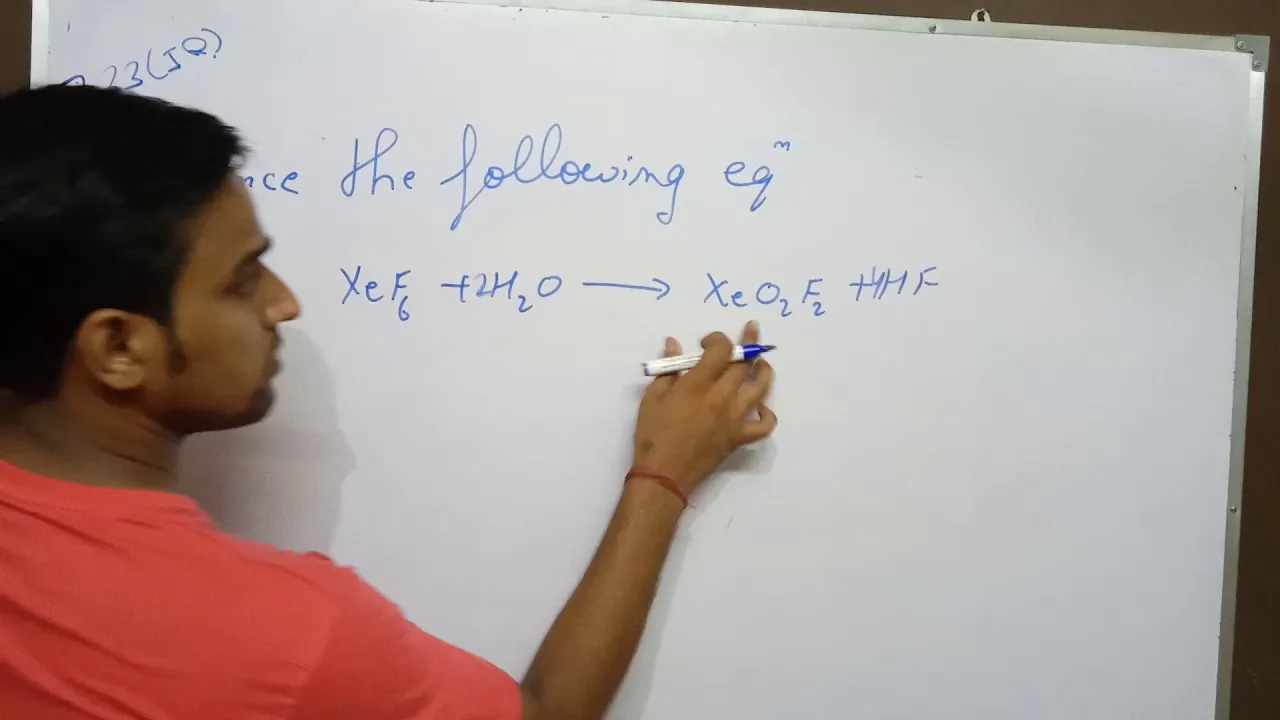 23(JQ)
nce the following eqⁿ
XeF₆ +2H₂O ⟶ XeO₂F₂ +4HF